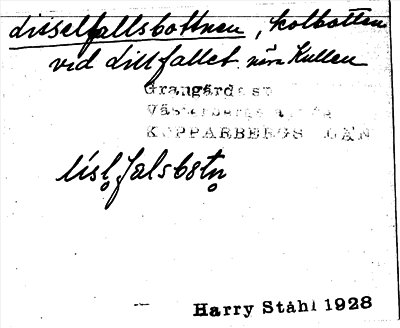 disselfallsbottnen, kolbotten
vid Lillfallet nära Kullen
Grangärde sn
Västerbergs
KOPPARBERGS LÄN
Harry Ståhl 1928